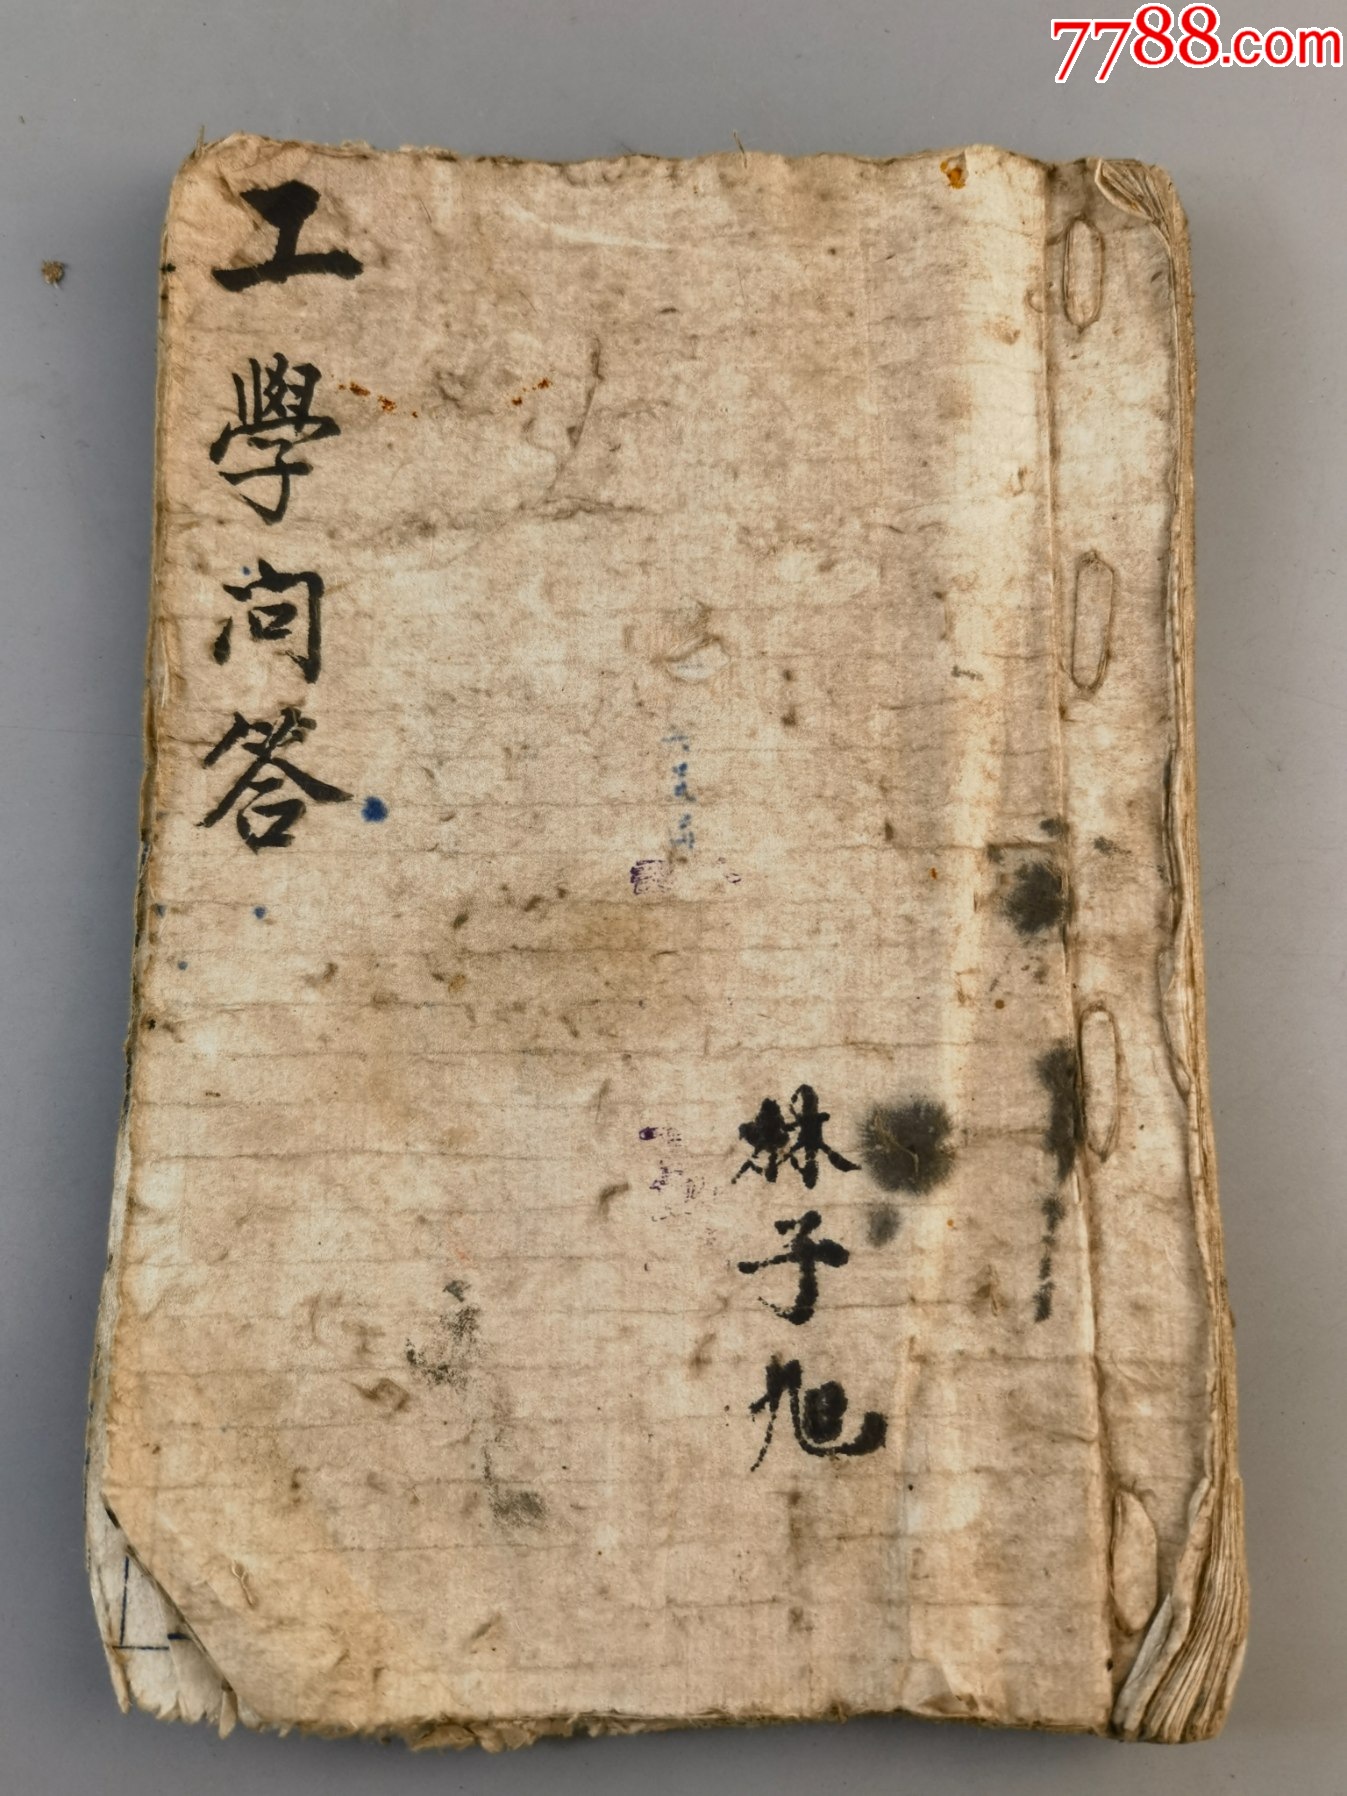 7788.com
工學问答
林子旭